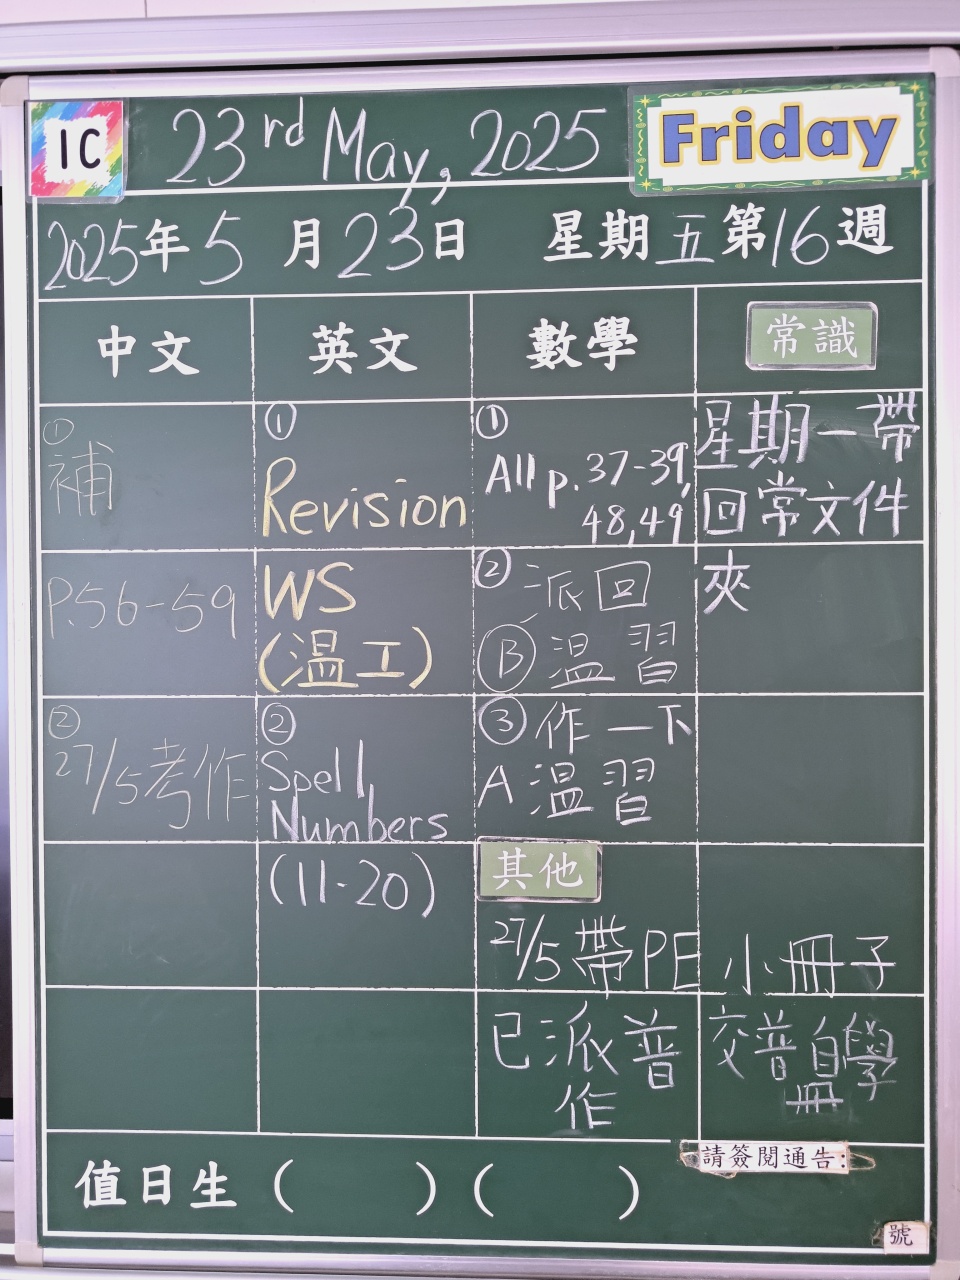 1C
23rd May, 2025
Friday
2025年5月23日 星期五第16週
中文
英文
數學
常識
①
補
P.56-59
②
27/5考作
①
Revision
WS
(温工)
②
Spell
Numbers
(11-20)
①
All p.37-39,
48,49
② 派回
Ⓑ 温習
③ 作一下
A 温習
星期一帶
回常文件
夾
其他
27/5 帶PE 小冊子
已派普
作
交普自學
冊
值日生 ( ) ( )
請簽閱通告:
號